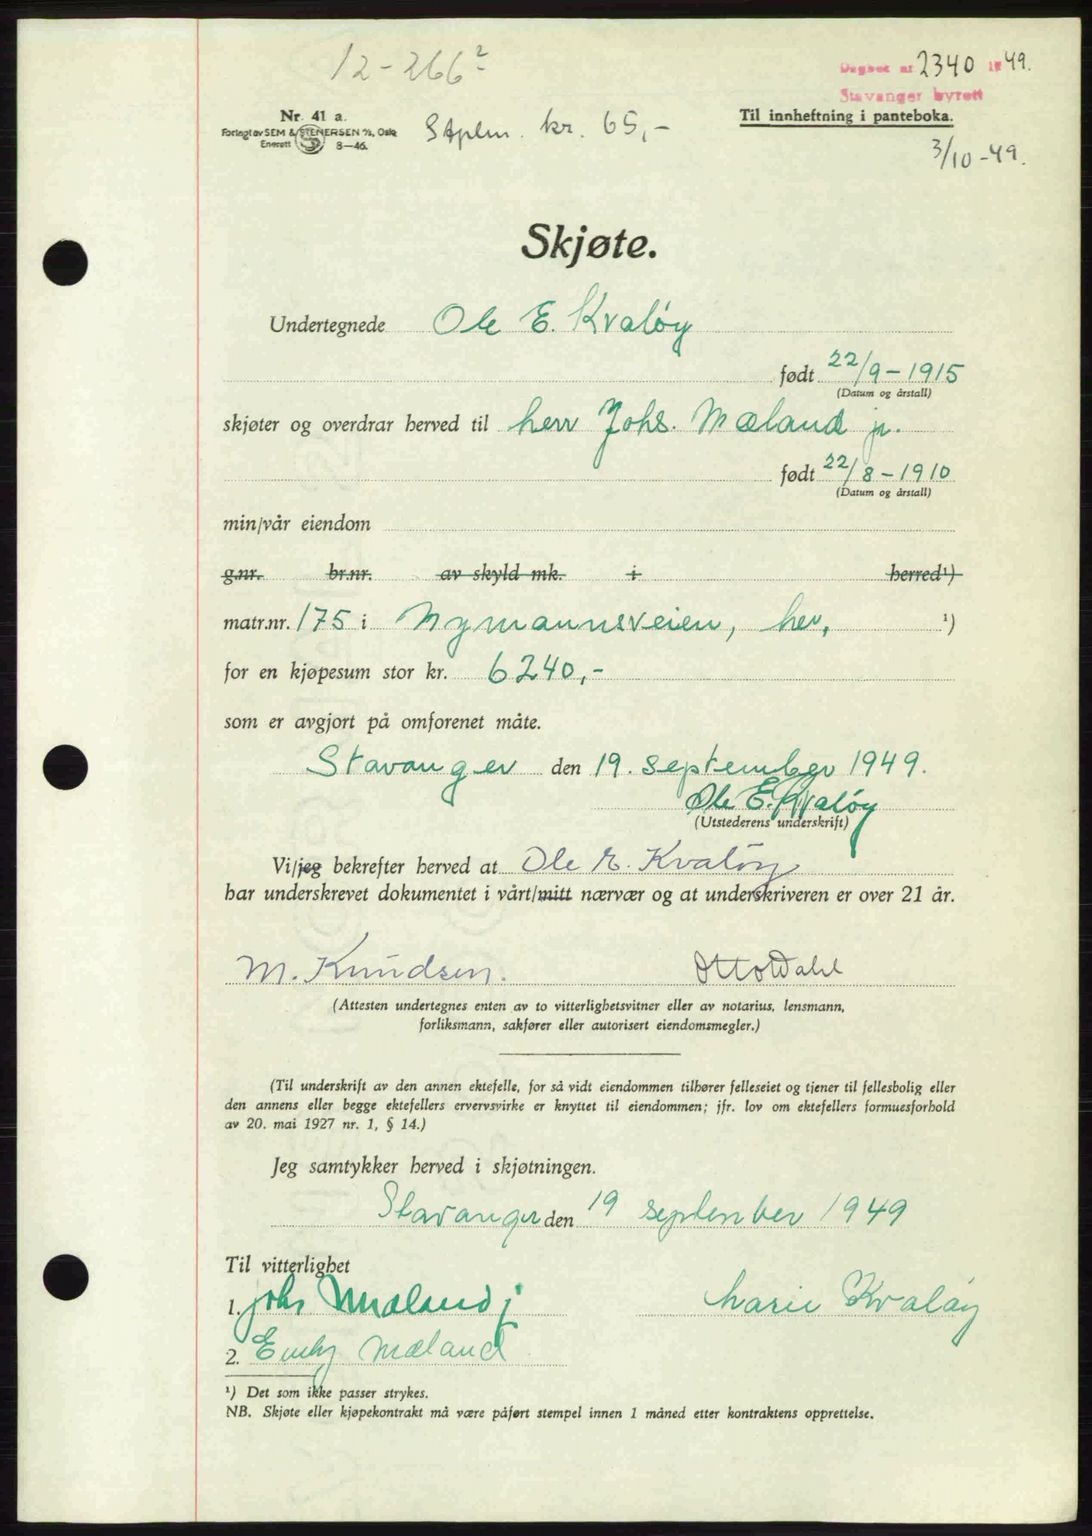 12-266²
Dagbok nr 2340 19 49.
Stavanger byrett
Nr. 41 a.
Forlagt av SEM & STENERSEN A/S, Oslo
Enerett 8-46.
Stplm. kr. 65,-
Til innheftning i panteboka.
3/10-49.
Skjøte.
Undertegnede Ole E. Kvaløy
født 22/9-1915
(Datum og årstall)
skjøter og overdrar herved til herr Johs. Mæland jr.
født 22/8-1910
(Datum og årstall)
min/vår eiendom
g.nr. br.nr. av skyld mk. i herred¹)
matr.nr. 175 i Nymannsveien, her, ¹)
for en kjøpesum stor kr. 6240,-
som er avgjort på omforenet måte.
Stavanger den 19. september 1949.
Ole E. Kvaløy
(Utstederens underskrift)
Vi/jeg bekrefter herved at Ole E. Kvaløy
har underskrevet dokumentet i vårt/mitt nærvær og at underskriveren er over 21 år.
M. Knudsen. Otto Dahl
(Attesten undertegnes enten av to vitterlighetsvitner eller av notarius, lensmann,
forliksmann, sakfører eller autorisert eiendomsmegler.)
(Til underskrift av den annen ektefelle, for så vidt eiendommen tilhører felleseiet og tjener til fellesbolig eller
den annens eller begge ektefellers ervervsvirke er knyttet til eiendommen; jfr. lov om ektefellers formuesforhold
av 20. mai 1927 nr. 1, § 14.)
Jeg samtykker herved i skjøtningen.
Stavanger den 19 september 1949
Til vitterlighet
1. Johs Mæland j Marie Kvaløy
2. Emly Mæland
¹) Det som ikke passer strykes.
NB. Skjøte eller kjøpekontrakt må være påført stempel innen 1 måned etter kontraktens opprettelse.